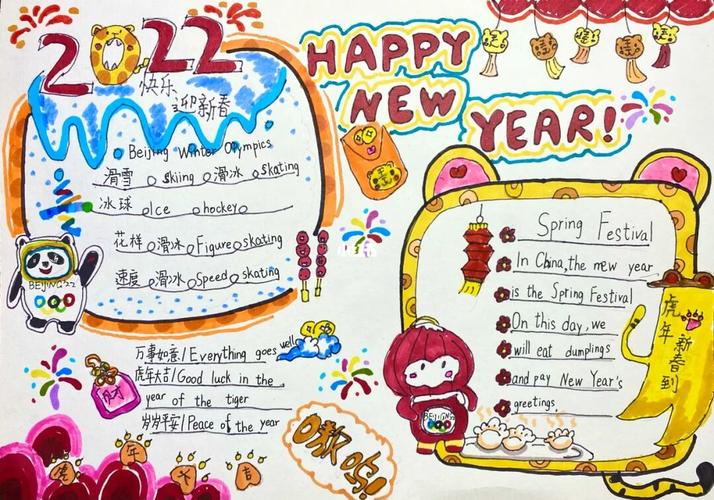 2022
快乐
迎新春
Beijing Winter Olympics
滑雪 skiing 滑冰 skating
冰球 Ice hockey
花样 滑冰 Figure skating
速度 滑冰 Speed skating
BEIJING'22
万事如意/Everything goes well
虎年大吉/Good luck in the
year of the tiger
岁岁平安/Peace of the year
财
虎年大吉
嗷呜!
HAPPY
NEW
YEAR!
Spring Festival
In China, the new year
is the Spring Festival
On this day, we
will eat dumplings
and pay New Year's
greetings.
BEIJING'22
虎年新春到